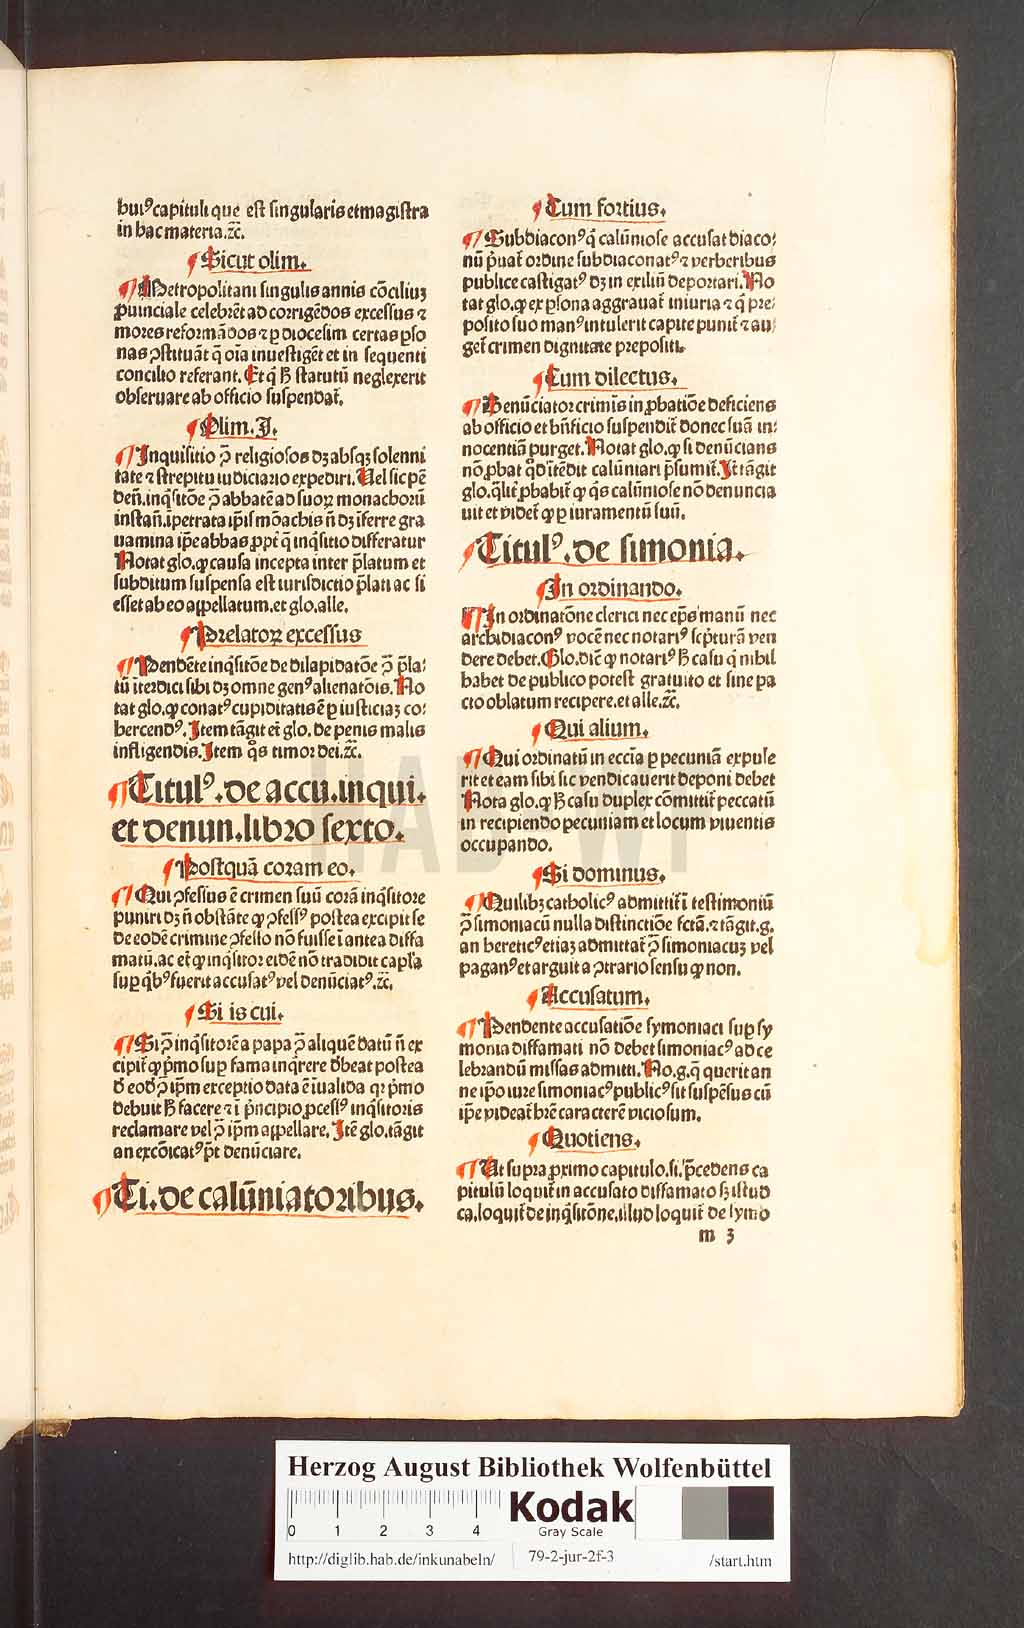 buiꝰ capituli que est singularis et magistra
in hac materia.ꝛc̄.
Sicut olim.
¶ Metropolitani singulis annis cōciliuꝫ
ꝓuinciale celebrēt ad corrigēdos excessus ⁊
mores reformādos ⁊ ꝑ diocesim certas ꝑso
nas ꝯstituāt q̄ oīa inuestigēt et in sequenti
concilio referant. Et q̄ hꝰ statutū neglexerit
obseruare ab officio suspendat̄.
Olim. I.
¶ Inquisitio ꝯ̄ religiosos dꝫ absqꝫ solenni
tate ⁊ strepitu iudiciario expediri. Uel sic pē
den̄. inq̄sitōe ꝯ̄ abbatē ad suoꝝ monachorū
instan̄. īpetrata ip̄is mōachis n̄ dꝫ īferre gra
uamina ip̄e abbas ꝓpt̄ q̄ inq̄sitio differatur
Notat glo. ꝙ causa incepta inter p̄latum et
subditum suspensa est iurisdictio p̄lati ac si
esset ab eo appellatum. et glo. alle.
Prelatoꝝ excessus
¶ Pendēte inq̄sitōe de dilapidatōe ꝯ̄ p̄la⸗
tū īterdici sibi dꝫ omne genꝰ alienatōis. No
tat glo. ꝙ conatꝰ cupiditatis ē ꝑ iusticiaꝫ co⸗
hercendꝰ. Item tāgit et̄ glo. de penis malis
infligendis. Item q̄s timor dei.ꝛc̄.
¶ Titulꝰ. de accu. inqui.
et denun. libro sexto.
Postquā coram eo.
¶ Qui ꝯfessus ē crimen suū corā inq̄sitore
puniri dꝫ n̄ obstāte ꝙ ꝯfessꝰ postea excipit se
de eodē crimine ꝯfesso nō fuisse ī antea diffa
matū. ac et̄ ꝙ inq̄sitor eidē nō tradidit capl̄a
suꝑ q̄bꝰ fuerit accusatꝰ vel denūciatꝰ.ꝛc̄.
Si is cui.
¶ Si ꝯ̄ inq̄sitorē a papa ꝯ̄ aliquē datū n̄ ex
cipit̄ ꝙ p̄mo suꝑ fama inq̄rere d̄beat postea
d̄ eodē ꝯ̄ ip̄m exceptio data ē īualida qꝛ p̄mo
debuit hꝰ facere ⁊ ī p̄ncipio ꝓcessꝰ inq̄sitoris
reclamare vel ꝯ̄ ip̄m appellare. Itē glo. tāgit
an excōicatꝰ p̄t denūciare.
¶ Ti. de calūniatoribus.
Cum fortius.
¶ Subdiaconꝰ q̄ calūniose accusat diaco⸗
nū p̄uat̄ ordine subdiaconatꝰ ⁊ verberibus
publice castigatꝰ dꝫ in exiliū deportari. No
tat glo. ꝙ ex ꝑsona aggrauat̄ iniuria ⁊ q̄ pre⸗
posito suo manꝰ intulerit capite punit̄ ⁊ au⸗
get̄ crimen dignitate prepositi.
Cum dilectus.
¶ Denūciator crimis in ꝓbatiōe deficiens
ab officio et bn̄ficio suspendit̄ donec suā in⸗
nocentiā purget. Notat glo. ꝙ si denūcians
nō ꝓbat qd̄ ītēdit calūniari p̄sumit̄. Itē tāgit
glo. q̄lit̄ ꝓbabit̄ ꝙ q̄s calūniose nō denuncia
uit et videt̄ ꝙ ꝑ iuramentū suū.
Titulꝰ. de simonia.
In ordinando.
¶ In ordinatōne clerici nec ep̄s manū nec
archidiaconꝰ vocē nec notariꝰ scp̄turā ven
dere debet. Glo. dic̄ ꝙ notariꝰ hꝰ casu q̄ nihil
habet de publico potest gratuito et sine pa
cto oblatum recipere. et alle.ꝛc̄.
Qui alium.
¶ Qui ordinatū in ecc̄ia ꝑ pecuniā expule
rit et eam sibi sic vendicauerit deponi debet
Nota glo. ꝙ hꝰ casu duplex cōmittit̄ peccatū
in recipiendo pecuniam et locum viuentis
occupando.
Si dominus.
¶ Quilibꝫ catholicꝰ admittit̄ ī testimoniū
ꝯ̄ simoniacū nulla distinctiōe fctā. ⁊ tāgit. g.
an hereticꝰ etiaꝫ admittat̄ ꝯ̄ simoniacuꝫ vel
paganꝰ et arguit a ꝯtrario sensu ꝙ non.
Accusatum.
¶ Pendente accusatiōe symoniaci suꝑ sy
monia diffamati nō debet simoniacꝰ ad ce
lebrandū missas admitti. No. g. q̄ querit an
ne ip̄o iure simoniacꝰ publicꝰ sit suspēsus cū
ip̄e videat̄ hr̄e caracterē viciosum.
Quotiens.
¶ Ut supra ꝓximo capitulo. si. p̄cedens ca
pitulū loquit̄ in accusato diffamato sꝫ istud
ca. loquit̄ de inq̄sitōne. illud loquit̄ de symo
m 3
HAB WF
Herzog August Bibliothek Wolfenbüttel
0 1 2 3 4
Kodak
Gray Scale
http://diglib.hab.de/inkunabeln/ 79-2-jur-2f-3 /start.htm